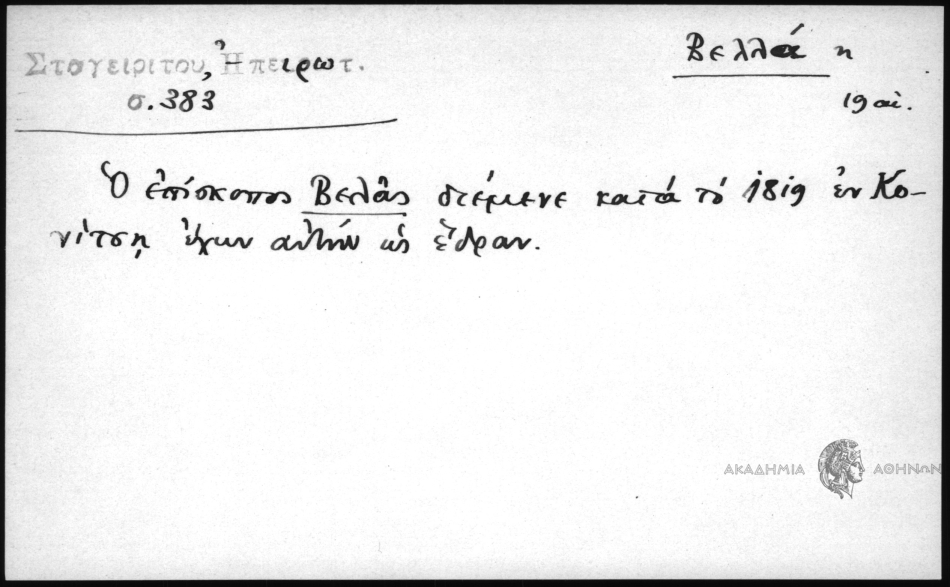 Σταγειρίτου, Ἠπειρωτ.
σ. 383
Βελλᾶ η
19 αἰ.
Ὁ ἐπίσκοπος Βελᾶς διέμενε κατά τό 1819 ἐν Κο-
νίτσῃ ἔχων αὐτήν ὡς ἕδραν.
ΑΚΑΔΗΜΙΑ ΑΘΗΝΩΝ